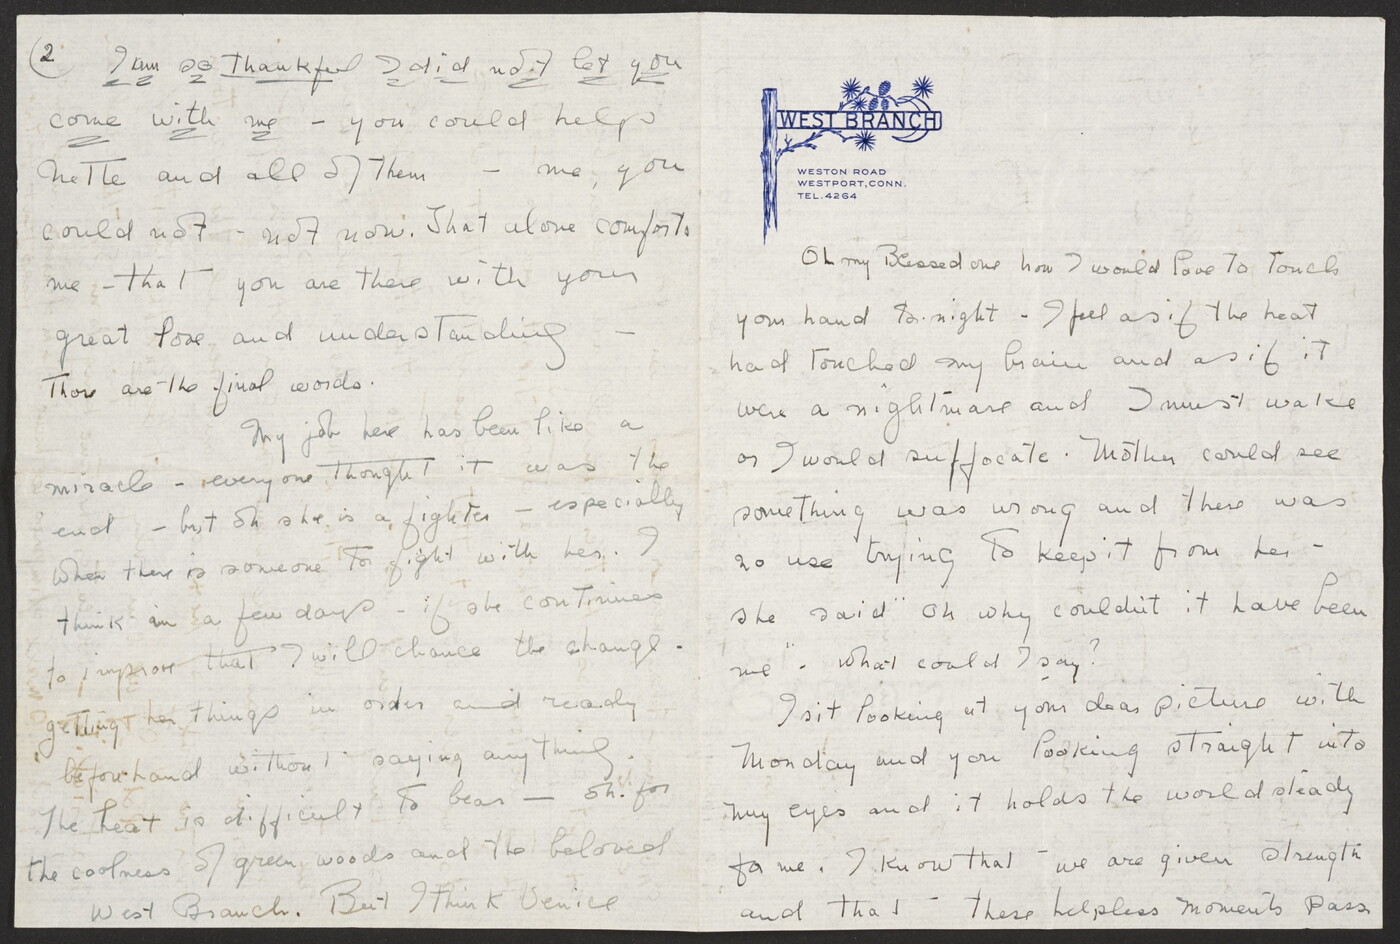 2
I am so thankful I did not let you
come with me - you could help
Nettie and all of them - me, you
could not - not now. That alone comforts
me - that you are there with your
great love and understanding -
Those are the final words.
My job here has been like a
miracle - everyone thought it was the
end - but oh she is a fighter - especially
when there is someone to fight with her. I
think in a few days - if she continues
to improve that I will chance the change -
getting her things in order and ready
beforehand without saying anything.
The heat is difficult to bear - oh for
the coolness of green woods and the beloved
West Branch. But I think Venice
WEST BRANCH
WESTON ROAD
WESTPORT, CONN.
TEL. 4264
Oh my Blessed one how I would love to touch
your hand to-night - I feel as if the heat
had touched my brain and as if it
were a nightmare and I must wake
or I would suffocate. Mother could see
something was wrong and there was
no use trying to keep it from her -
she said "oh why couldn't it have been
me" - what could I say?
I sit looking at your dear picture with
Monday and you looking straight into
my eyes and it holds the world steady
for me. I know that we are given strength
and that these helpless moments pass